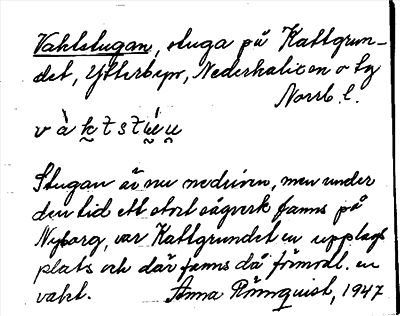 Vaktstugan, stuga på Kattgrun-
det, Ytterbyn, Nederkalix sn o tg
Norrb. l.
v à k t s t ú u
Stugan är nu nedriven, men under
den tid ett stort sågverk fanns på
Nyborg, var Kattgrundet en upplags
plats och där fanns då förmodl. en
vakt. Anna Rönnquist, 1947